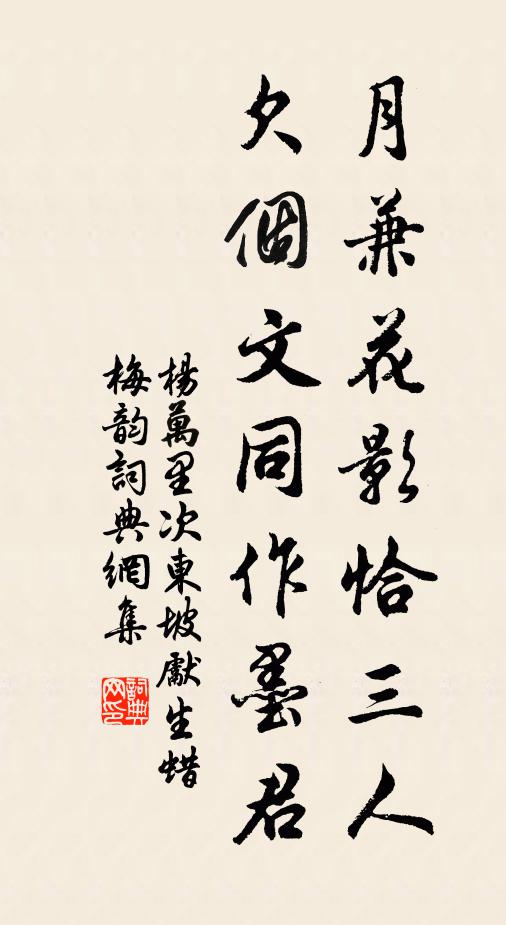 月兼花影恰三人
欠個文同作墨君
楊萬里次東坡獻生蜡
梅韵詞典網集
詞典网印